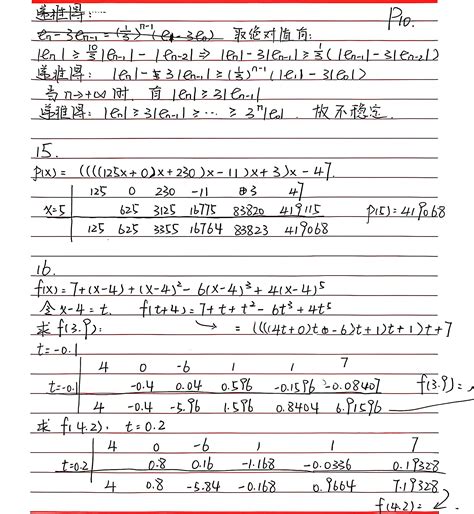 递推得：…
P10.
eₙ - 3eₙ₋₁ = (1/3)ⁿ⁻¹(e₁ - 3e₀) 取绝对值有：
|eₙ| ≥ 10/3|eₙ₋₁| - |eₙ₋₂| ⇒ |eₙ| - 3|eₙ₋₁| ≥ 1/3(|eₙ₋₁| - 3|eₙ₋₂|)
递推得： |eₙ| - 3|eₙ₋₁| ≥ (1/3)ⁿ⁻¹(|e₁| - 3|e₀|)
当 n→+∞ 时, 有 |eₙ| ≥ 3|eₙ₋₁|
递推得：|eₙ| ≥ 3|eₙ₋₁| ≥ … ≥ 3ⁿ|e₀|. 故不稳定.
15.
p(x) = ((((125x+0)x+230)x-11)x+3)x-47.
125 0 230 -11 3 47
x=5 625 3125 16775 83820 419115 p(5)=419068
125 625 3355 16764 83823 419068
16.
f(x) = 7+(x-4)+(x-4)²-6(x-4)³+4(x-4)⁵
令 x-4=t. f(t+4) = 7+t+t²-6t³+4t⁵
求 f(3.9): → = ((((4t+0)t-6)t+1)t+1)t+7
t=-0.1
4 0 -6 1 1 7
t=-0.1 -0.4 0.04 0.596 -0.1596 -0.08407 f(3.9)=
4 -0.4 -5.96 1.596 0.8404 6.91596
求 f(4.2), t=0.2
4 0 -6 1 1 7
t=0.2 0.8 0.16 -1.168 -0.0336 0.19328
4 0.8 -5.84 -0.168 0.9664 7.19328
f(4.2)=